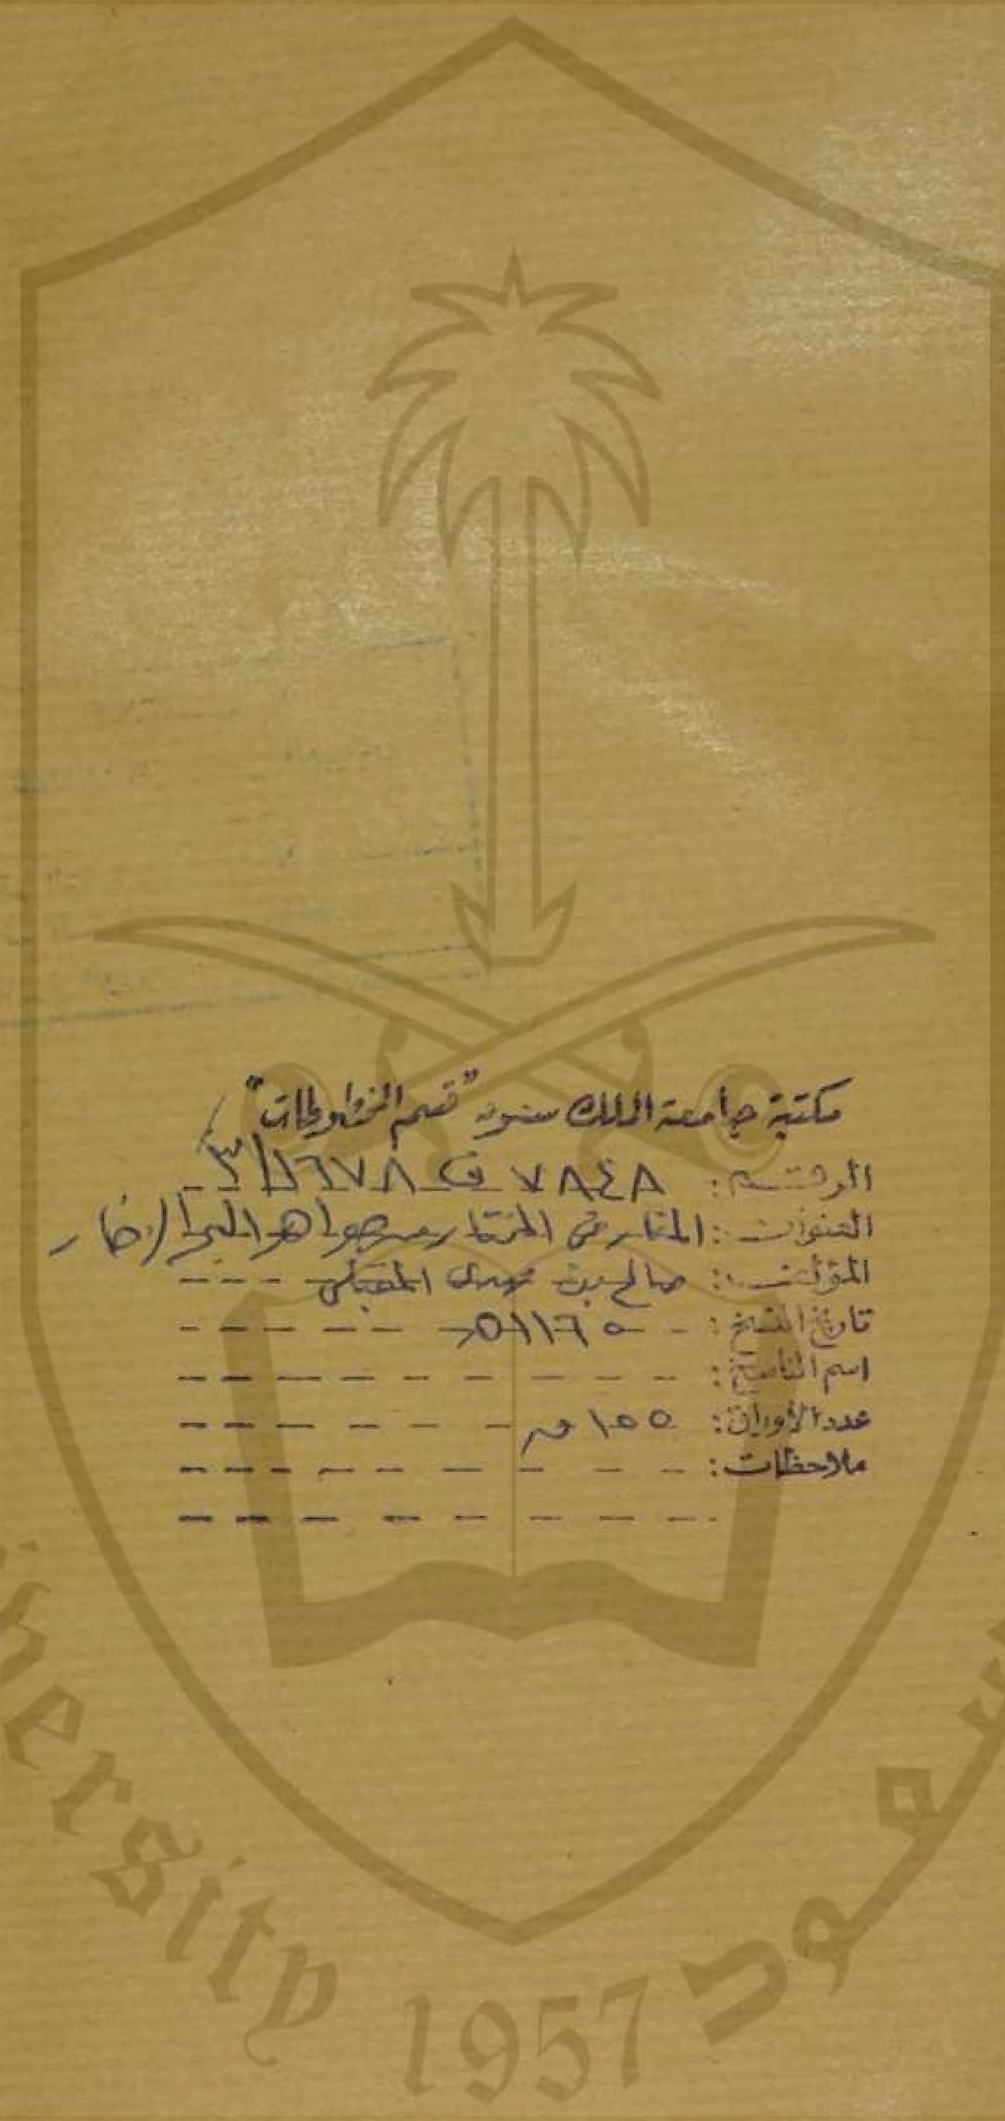 مكتبة جامعة الملك سعود "قسم المخطوطات"
الرقم: ٧٨٤٨ ف ١٦٧٨/٣
العنوان: المنار في المختار من جواهر البحر الزخار
المؤلف: صالح بن مهدي المقبلي
تاريخ النسخ: ١١٦٥هـ
اسم الناسخ:
عدد الأوراق: ١٥٥ ق
ملاحظات:
ersity 1957 سعود